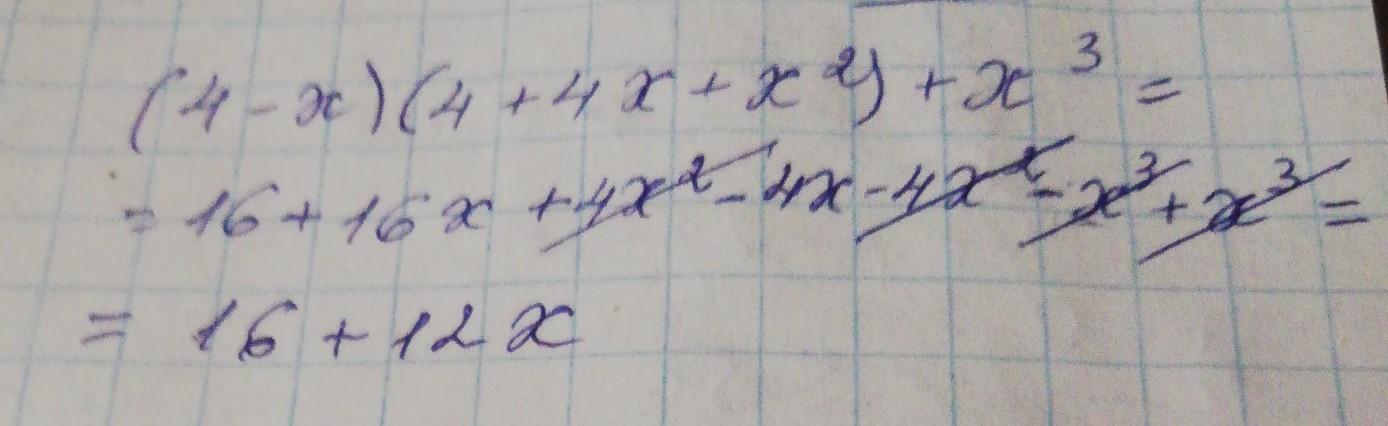 (4 - x)(4 + 4x + x²) + x³ =
= 16 + 16x + 4x² - 4x - 4x² - x³ + x³ =
= 16 + 12x